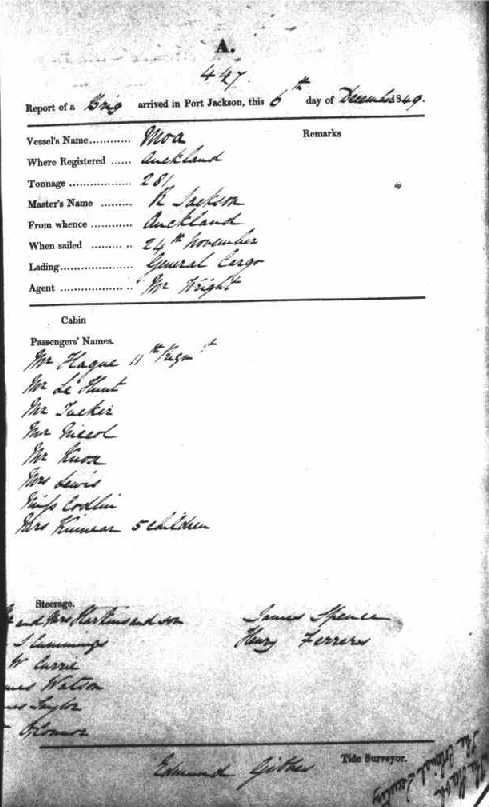 A.
447
Report of a Brig arrived in Port Jackson, this 6th day of December 1849.
Remarks
Vessel's Name............ Moa
Where Registered ...... Auckland
Tonnage .................. 281
Master's Name ......... R Jackson
From whence ............ Auckland
When sailed ............ 24th November
Lading..................... General Cargo
Agent ..................... Mr Wright
Cabin
Passengers' Names.
Mr Hague 11th Regmt
Mr Le Hunt
Mr Tucker
Mr Nicol
Mr Knox
Mrs Lewis
Miss Codlin
Mrs Kinnear 5 children
Steerage.
and Mrs and son James Spence
S Cummings Henry Ferrers
W Currie
Watson
Taylor
O'Connor
Tide Surveyor.
Edmund